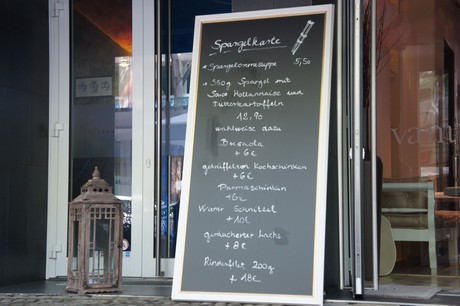 Spargelkarte
* Spargelcremesuppe 5,50
* 350g Spargel mit
Sauce Hollandaise und
Butterkartoffeln
12,90
wahlweise dazu
+ 6€
getrüffelten Kochschinken
+ 6€
Parmaschinken
+ 8€
Wiener Schnitzel
+ 10€
geräucherter Lachs
+ 8€
Rinderfilet 200g
+ 18€